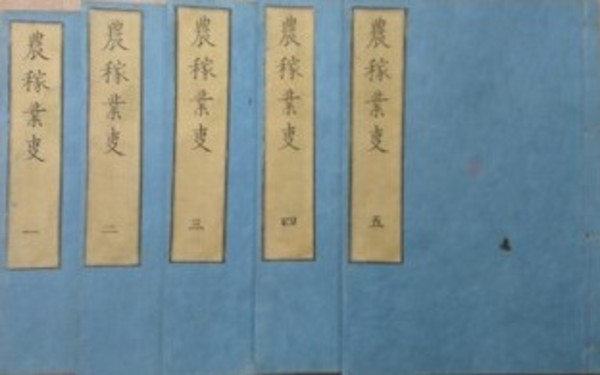 農稼業叓 一
農稼業叓 二
農稼業叓 三
農稼業叓 四
農稼業叓 五